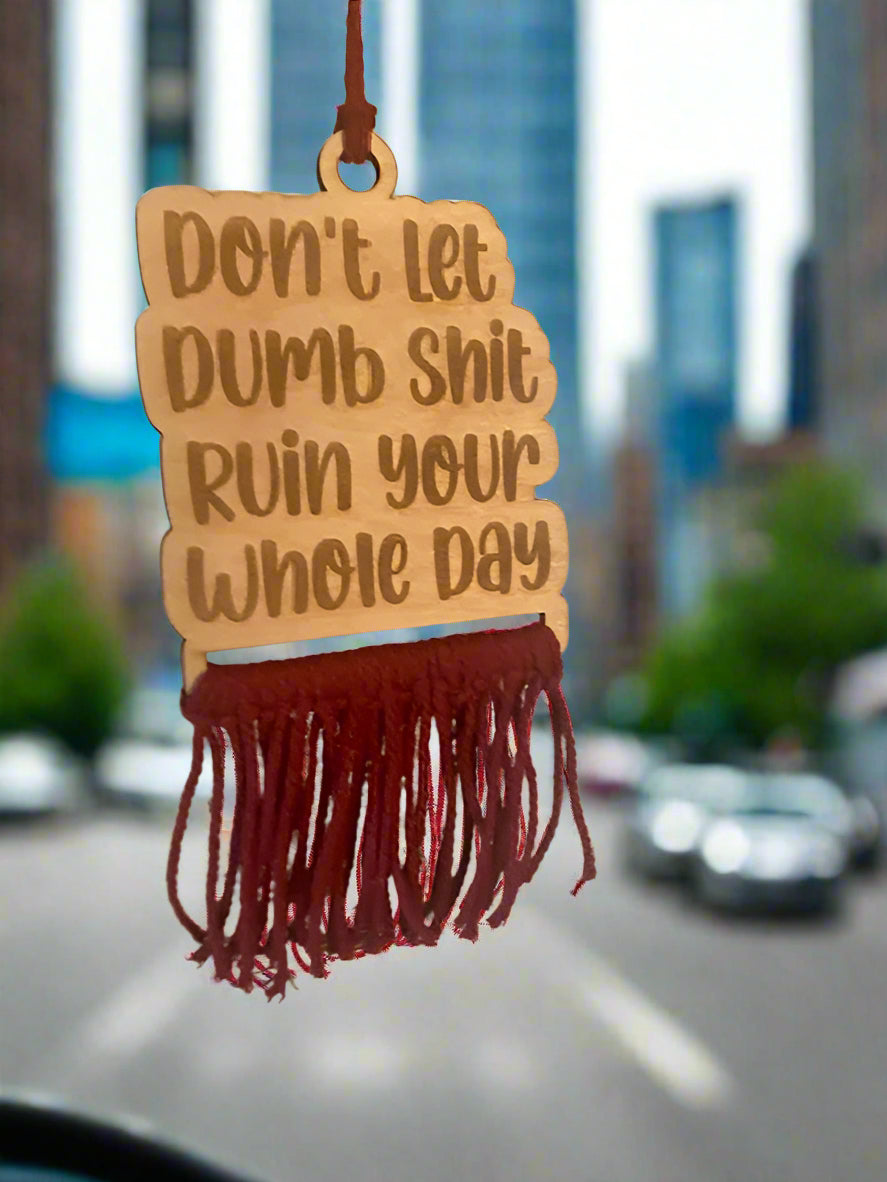 Don't Let
Dumb Shit
Ruin Your
Whole Day